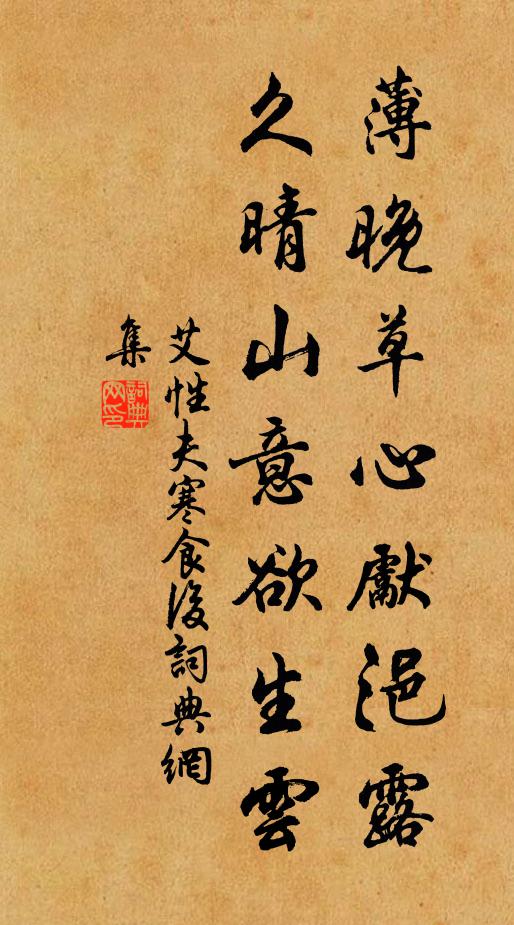 薄晚草心獻浥露
久晴山意欲生雲
艾性夫寒食後詞典網
集
詞典
网印